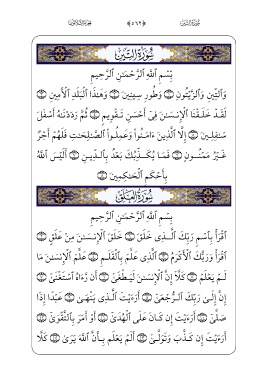 سُورَةُ التِّينِ
بِسْمِ اللَّهِ الرَّحْمَٰنِ الرَّحِيمِ
وَالتِّينِ وَالزَّيْتُونِ ۝ وَطُورِ سِينِينَ ۝ وَهَٰذَا الْبَلَدِ الْأَمِينِ ۝
لَقَدْ خَلَقْنَا الْإِنسَٰنَ فِي أَحْسَنِ تَقْوِيمٍ ۝ ثُمَّ رَدَدْنَٰهُ أَسْفَلَ
سَٰفِلِينَ ۝ إِلَّا الَّذِينَ ءَامَنُوا وَعَمِلُوا الصَّٰلِحَٰتِ فَلَهُمْ أَجْرٌ
غَيْرُ مَمْنُونٍ ۝ فَمَا يُكَذِّبُكَ بَعْدُ بِالدِّينِ ۝ أَلَيْسَ اللَّهُ
بِأَحْكَمِ الْحَٰكِمِينَ ۝
سُورَةُ الْعَلَقِ
بِسْمِ اللَّهِ الرَّحْمَٰنِ الرَّحِيمِ
اقْرَأْ بِاسْمِ رَبِّكَ الَّذِي خَلَقَ ۝ خَلَقَ الْإِنسَٰنَ مِنْ عَلَقٍ ۝
اقْرَأْ وَرَبُّكَ الْأَكْرَمُ ۝ الَّذِي عَلَّمَ بِالْقَلَمِ ۝ عَلَّمَ الْإِنسَٰنَ مَا
لَمْ يَعْلَمْ ۝ كَلَّا إِنَّ الْإِنسَٰنَ لَيَطْغَىٰ ۝ أَن رَّءَاهُ اسْتَغْنَىٰ ۝
إِنَّ إِلَىٰ رَبِّكَ الرُّجْعَىٰ ۝ أَرَءَيْتَ الَّذِي يَنْهَىٰ ۝ عَبْدًا إِذَا
صَلَّىٰ ۝ أَرَءَيْتَ إِن كَانَ عَلَى الْهُدَىٰ ۝ أَوْ أَمَرَ بِالتَّقْوَىٰ ۝
أَرَءَيْتَ إِن كَذَّبَ وَتَوَلَّىٰ ۝ أَلَمْ يَعْلَم بِأَنَّ اللَّهَ يَرَىٰ ۝ كَلَّا